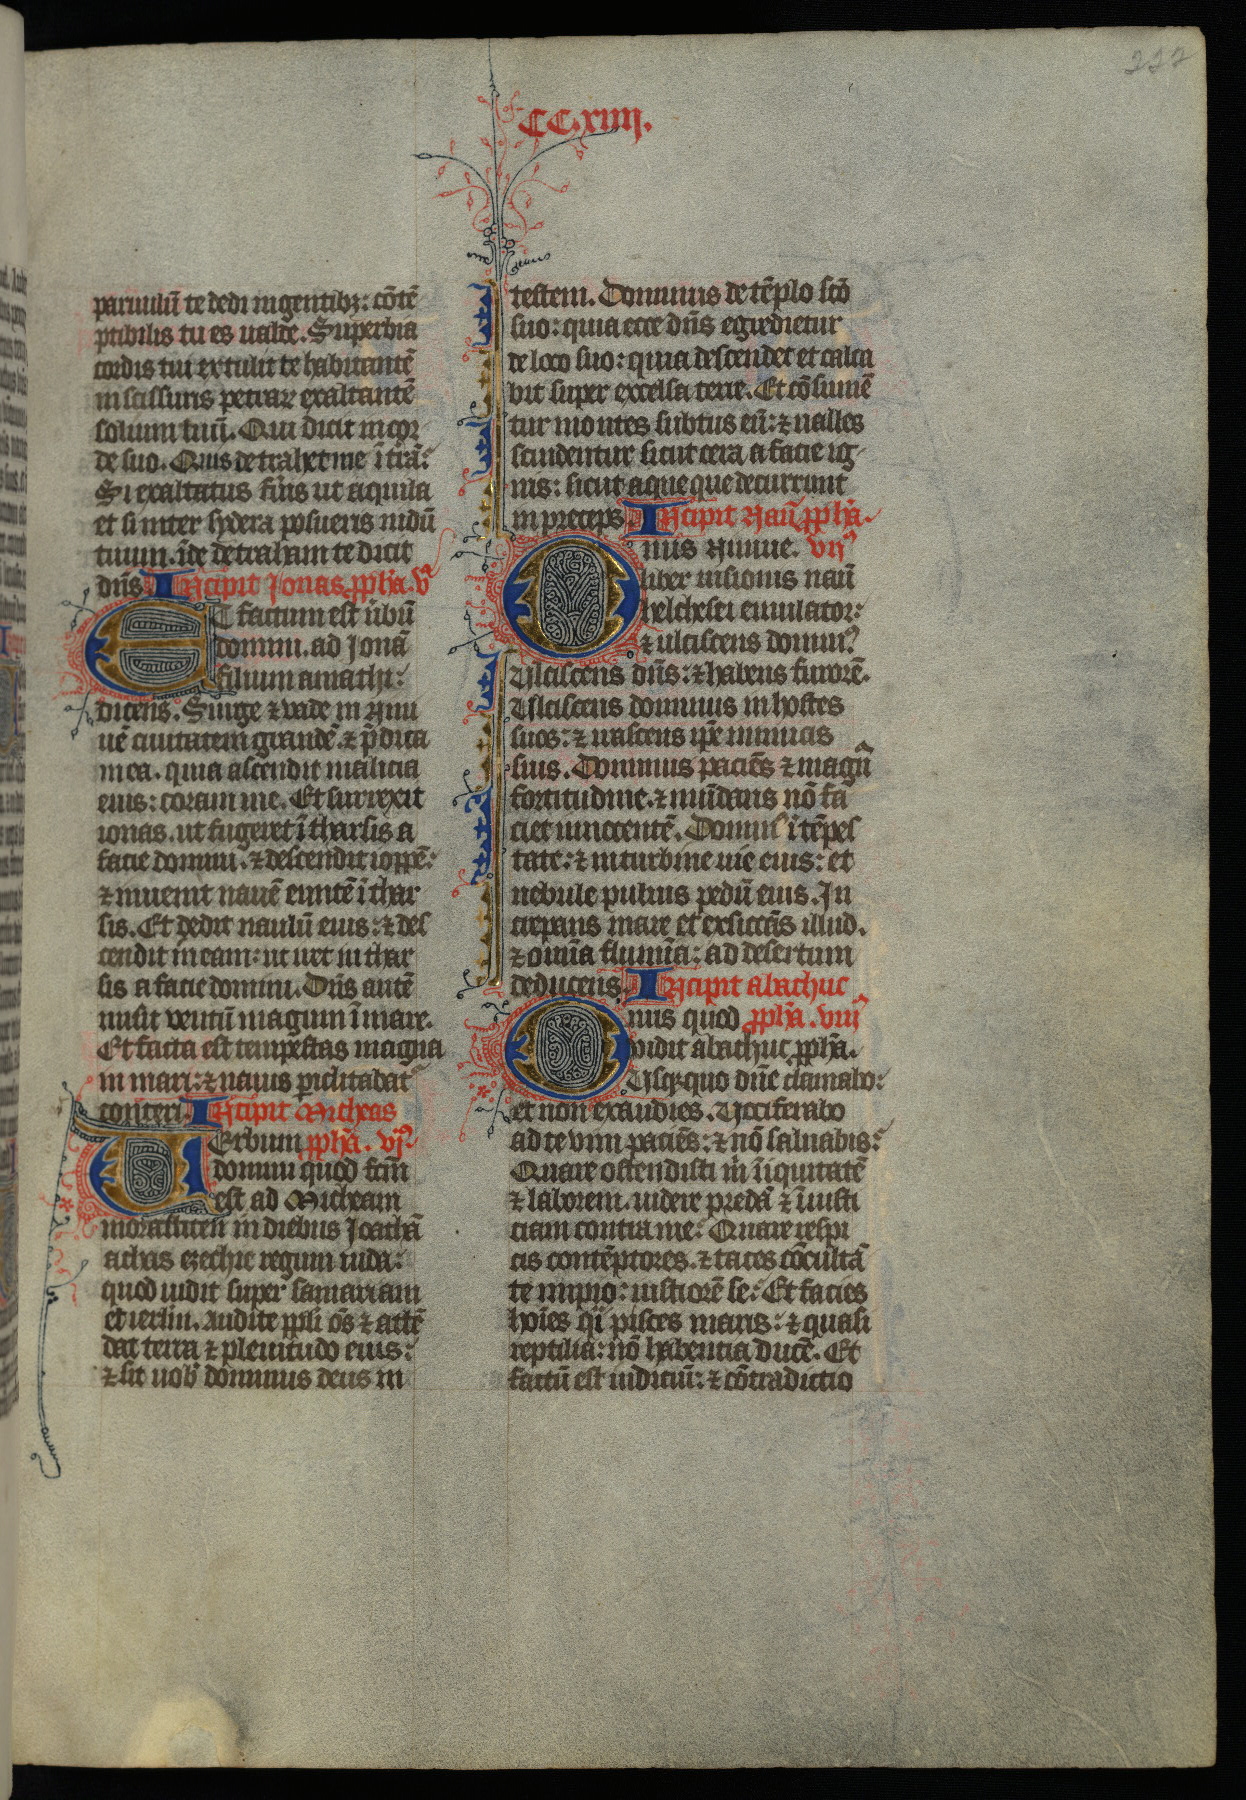 222
CC.xiiij.
paruulū te dedi in gentibꝫ: cōtē
ptibilis tu es ualde. Superbia
cordis tui extulit te habitantē
in scissuris petraꝝ exaltantē
solium tuū. Qui dicit in cor
de suo. Quis detrahet me ī trā:
Si exaltatus fūis ut aquila
et si inter sydera posueris nidū
tuum. īde detraham te dicit
dn̄s Incipit Jonas ꝓpha. v
Et factum est ūbū
domini. ad Jonā
filium amathi:
dicens. Surge ⁊ vade in Nini
uē ciuitatem grandē. ⁊ p̄dica
in ea. quia ascendit malicia
eius: coram me. Et surrexit
ionas. ut fugeret ī tharsis a
facie domini. ⁊ descendit ioppē:
⁊ inuenit nauē euntē ī thar
sis. Et dedit naulū eius: ⁊ des
cendit in eam: ut iret in thar
sis a facie domini. Dn̄s autē
misit ventū magnum ī mare.
Et facta est tempestas magna
in mari: ⁊ nauis piclitabat
conteri. Incipit Micheas
Verbum ꝓpha. vj.
domini quod fc̄m
est ad Micheam
morasticen in diebus Joathā
achas ezechie regum iuda:
quod uidit super samariam
et ierlm̄. Audite ppl̄i om̄s ⁊ attē
dat terra ⁊ plenitudo eius:
⁊ sit uob̄ dominus deus in
testem. Dominus de tēplo scō
suo: quia ecce dn̄s egredietur
de loco suo: quia descendet et calca
bit super excelsa terre. Et cōsumē
tur montes subtus eū: ⁊ ualles
scindentur sicut cera a facie ig
nis: sicut aque que decurrunt
in preceps. Incipit Naū ꝓpha.
Onus Niniue. vij
liber uisionis naū
helchesei emulator:
⁊ ulciscens dominꝰ
Ulciscens dn̄s: ⁊ habens furorē.
Ulciscens dominus in hostes
suos: ⁊ irascens ip̄e inimicis
suis. Dominus paciēs ⁊ magnꝰ
fortitudine. ⁊ mūdans nō fa
ciet innocentē. Dominꝰ ī tēpes
tate: ⁊ in turbine uie eius: et
nebule puluis pedū eius. In
crepans mare et exsiccās illud.
⁊ omīa flumīa: ad desertum
deducens. Incipit abachuc
Onus quod ꝓpha. viij
vidit abachuc ꝓpha.
Usqꝫquo dn̄e clamabo:
et non exaudies. Uociferabo
ad te vim paciēs: ⁊ nō saluabis:
Quare ostendisti m̄ iniquitatē
⁊ laborem. uidere predā ⁊ iniusti
ciam contra me: Quare respi
cis contēptores. ⁊ taces cōculcā
te impio: iustiorē se: Et facies
hoīes q̄i pisces maris: ⁊ quasi
reptilia: nō habentia ducē. Et
factū est iudiciū: ⁊ cōtradictio